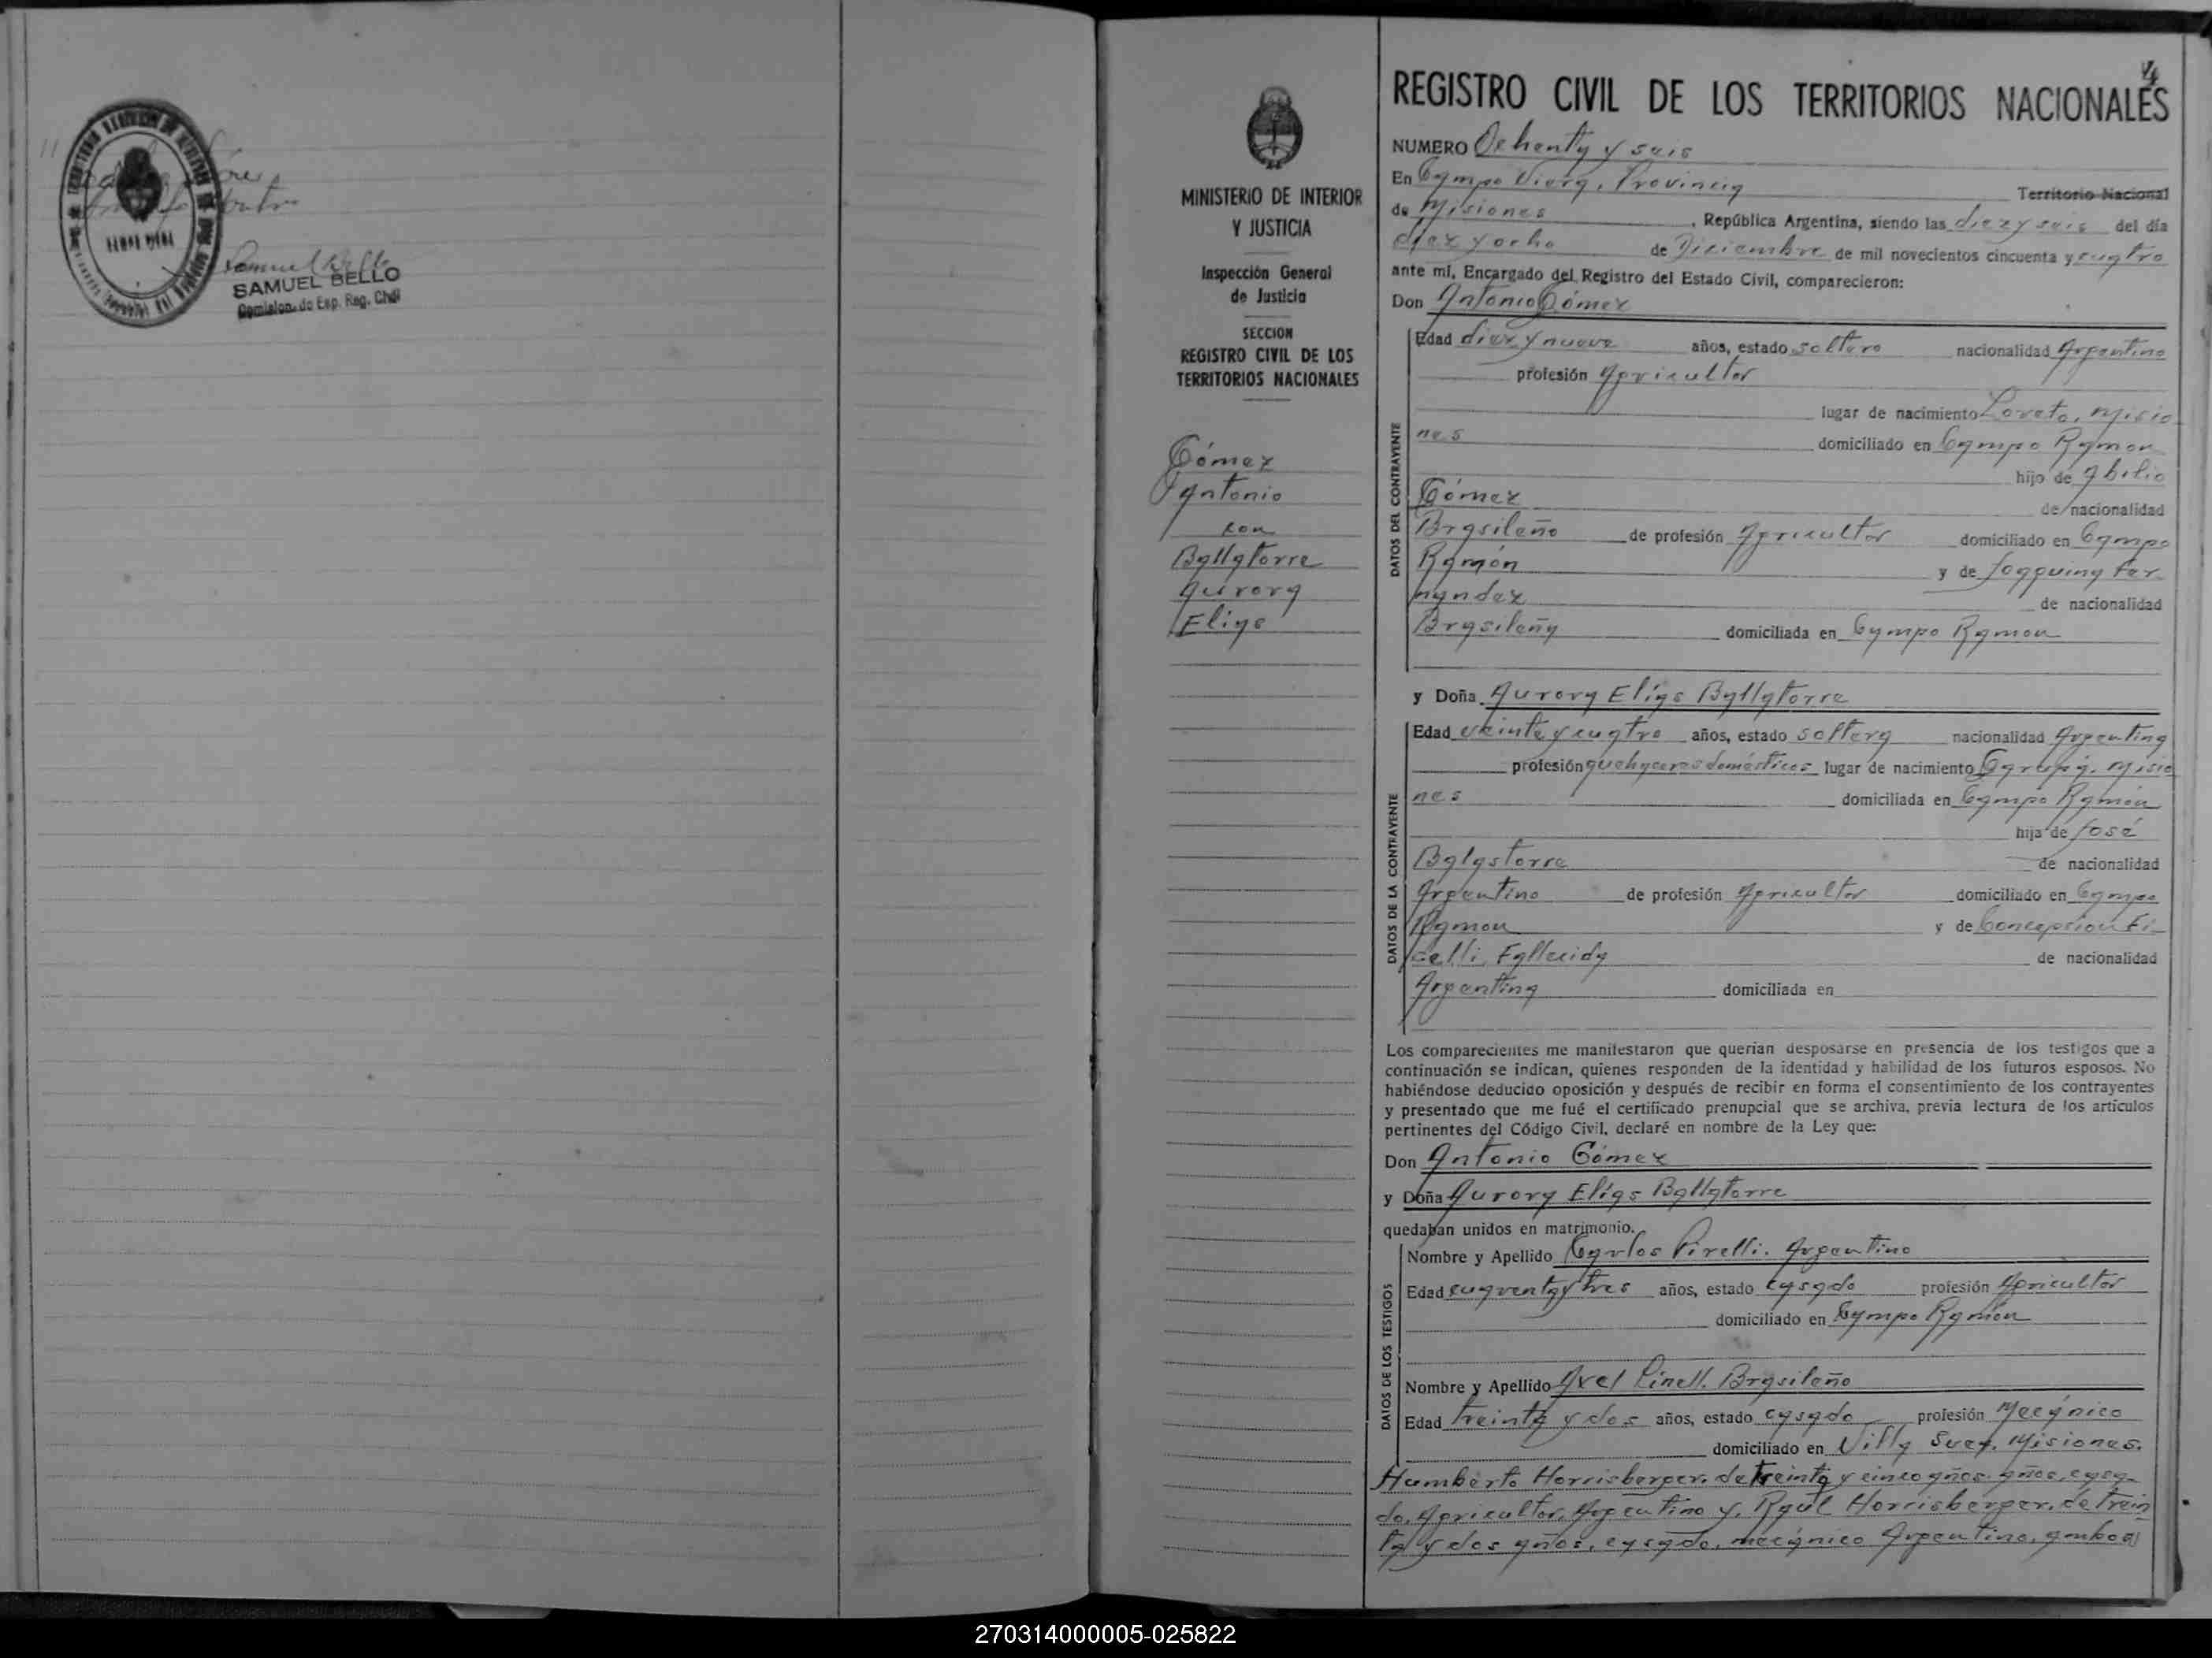 SAMUEL BELLO
Comision. de Esp. Reg. Civil
MINISTERIO DE INTERIOR
Y JUSTICIA
Inspección General
de Justicia
SECCION
REGISTRO CIVIL DE LOS
TERRITORIOS NACIONALES
Gómez
Antonio
con
Ballatorre
Aurora
Elias
REGISTRO CIVIL DE LOS TERRITORIOS NACIONALES
NUMERO Ochenta y seis
En Campo Viera, Provincia Territorio Nacional
de Misiones, República Argentina, siendo las diez y seis del día
diez y ocho de Diciembre de mil novecientos cincuenta y cuatro
ante mí, Encargado del Registro del Estado Civil, comparecieron:
Don Antonio Gómez
DATOS DEL CONTRAYENTE
Edad diez y nueve años, estado soltero nacionalidad Argentino
profesión Agricultor
lugar de nacimiento Loreto, Misio
nes domiciliado en Campo Ramon
hijo de Abilio
Gómez de nacionalidad
Brasileño de profesión Agricultor domiciliado en Campo
Ramón y de Joaquina Fer
nandez de nacionalidad
Brasileña domiciliada en Campo Ramon
y Doña Aurora Elías Ballatorre
DATOS DE LA CONTRAYENTE
Edad veinte y cuatro años, estado soltera nacionalidad Argentina
profesión quehaceres domésticos lugar de nacimiento Misio
nes domiciliada en Campo Ramón
hija de José
Balastorre de nacionalidad
Argentino de profesión Agricultor domiciliado en Campo
Ramon y de Concepcion Fi
delli, Fallecida de nacionalidad
Argentina domiciliada en
Los comparecientes me manifestaron que querían desposarse en presencia de los testigos que a
continuación se indican, quienes responden de la identidad y habilidad de los futuros esposos. No
habiéndose deducido oposición y después de recibir en forma el consentimiento de los contrayentes
y presentado que me fué el certificado prenupcial que se archiva, previa lectura de los artículos
pertinentes del Código Civil, declaré en nombre de la Ley que:
Don Antonio Gómez
y Doña Aurora Elías Ballatorre
quedaban unidos en matrimonio.
DATOS DE LOS TESTIGOS
Nombre y Apellido Carlos Pirelli. Argentino
Edad cuarenta y tres años, estado casado profesión Agricultor
domiciliado en Campo Ramón
Nombre y Apellido Axel Linell. Brasileño
Edad treinta y dos años, estado casado profesión Mecánico
domiciliado en Villa Svea, Misiones.
Humberto Horrisberger, de treinta y cinco años años, casa-
do, Agricultor, Argentino y, Raúl Horrisberger, de trein
ta y dos años, casado, mecánico Argentino, ambos
270314000005-025822